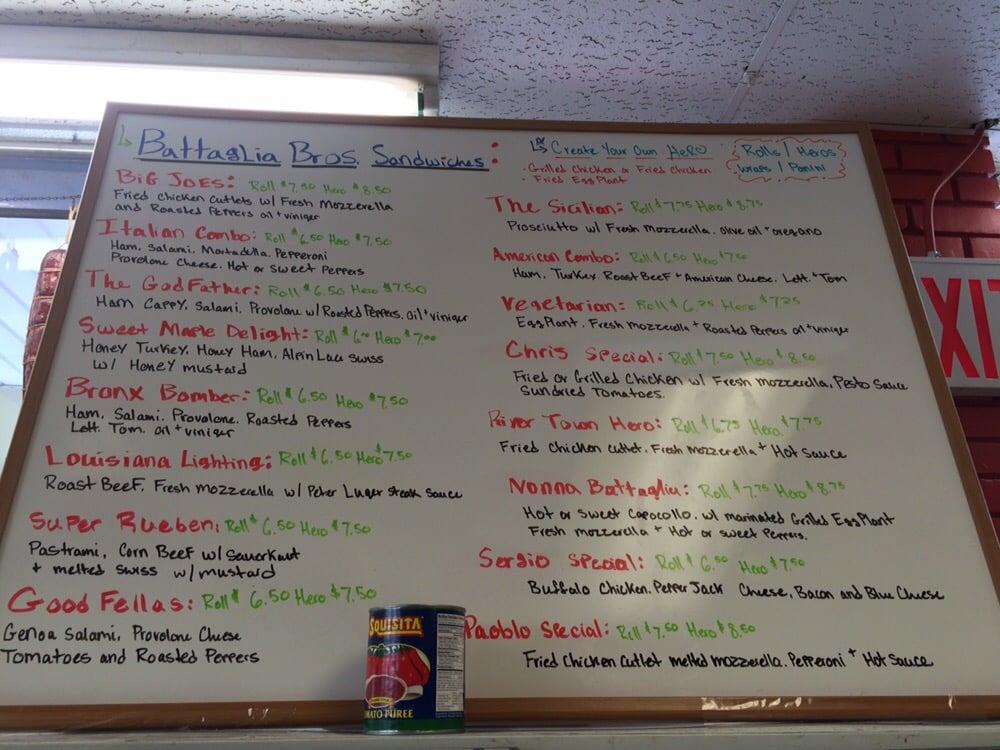 Battaglia Bros. Sandwiches:
Big Joes: Roll $7.50 Hero $8.50
Fried chicken cutlets w/ Fresh Mozzerella
and Roasted Peppers oil + viniger
Italian Combo: Roll $6.50 Hero $7.50
Ham, Salami, Mortadella, Pepperoni
Provolone Cheese, Hot or Sweet Peppers
The GodFather: Roll $6.50 Hero $7.50
Ham Cappy, Salami, Provolone w/ Roasted Peppers, oil + viniger
Sweet Maple Delight: Roll $6.00 Hero $7.00
Honey Turkey, Honey Ham, Alpin Lace swiss
w/ Honey mustard
Bronx Bomber: Roll $6.50 Hero $7.50
Ham, Salami, Provolone, Roasted Peppers
Lett. Tom. oil + viniger
Louisiana Lighting: Roll $6.50 Hero $7.50
Roast Beef, Fresh Mozzerella w/ Peter Luger Steak Sauce
Super Rueben: Roll $6.50 Hero $7.50
Pastrami, Corn Beef w/ Sauerkraut
+ melted swiss w/ mustard
Good Fellas: Roll $6.50 Hero $7.50
Genoa Salami, Provolone Cheese
Tomatoes and Roasted Peppers
or Create Your Own Hero
· Grilled Chicken or Fried Chicken
· Fried EggPlant
Rolls / Heros
wraps / Panini
The Sicilian: Roll $7.75 Hero $8.75
Prosciutto w/ Fresh Mozzarella, olive oil + oregano
American Combo: Roll $6.50 Hero $7.50
Ham, Turkey, Roast Beef + American Cheese, Lett. + Tom
Vegetarian: Roll $6.25 Hero $7.25
EggPlant, Fresh mozzerella + Roasted Peppers oil + viniger
Chris Special: Roll $7.50 Hero $8.50
Fried or Grilled Chicken w/ Fresh mozzerella, Pesto Sauce
Sundried Tomatoes.
River Town Hero: Roll $6.75 Hero $7.75
Fried Chicken cutlet, Fresh Mozzerella + Hot Sauce
Nonna Battaglia: Roll $7.75 Hero $8.75
Hot or Sweet Capocollo, w/ marinated Grilled EggPlant
Fresh mozzerella + Hot or sweet Peppers.
Sergio Special: Roll $6.50 Hero $7.50
Buffalo Chicken, Pepper Jack Cheese, Bacon and Blue Cheese
Paoblo Special: Roll $7.50 Hero $8.50
Fried Chicken Cutlet melted mozzerella, Pepperoni + Hot Sauce
EXIT
SQUISITA
TOMATO PUREE